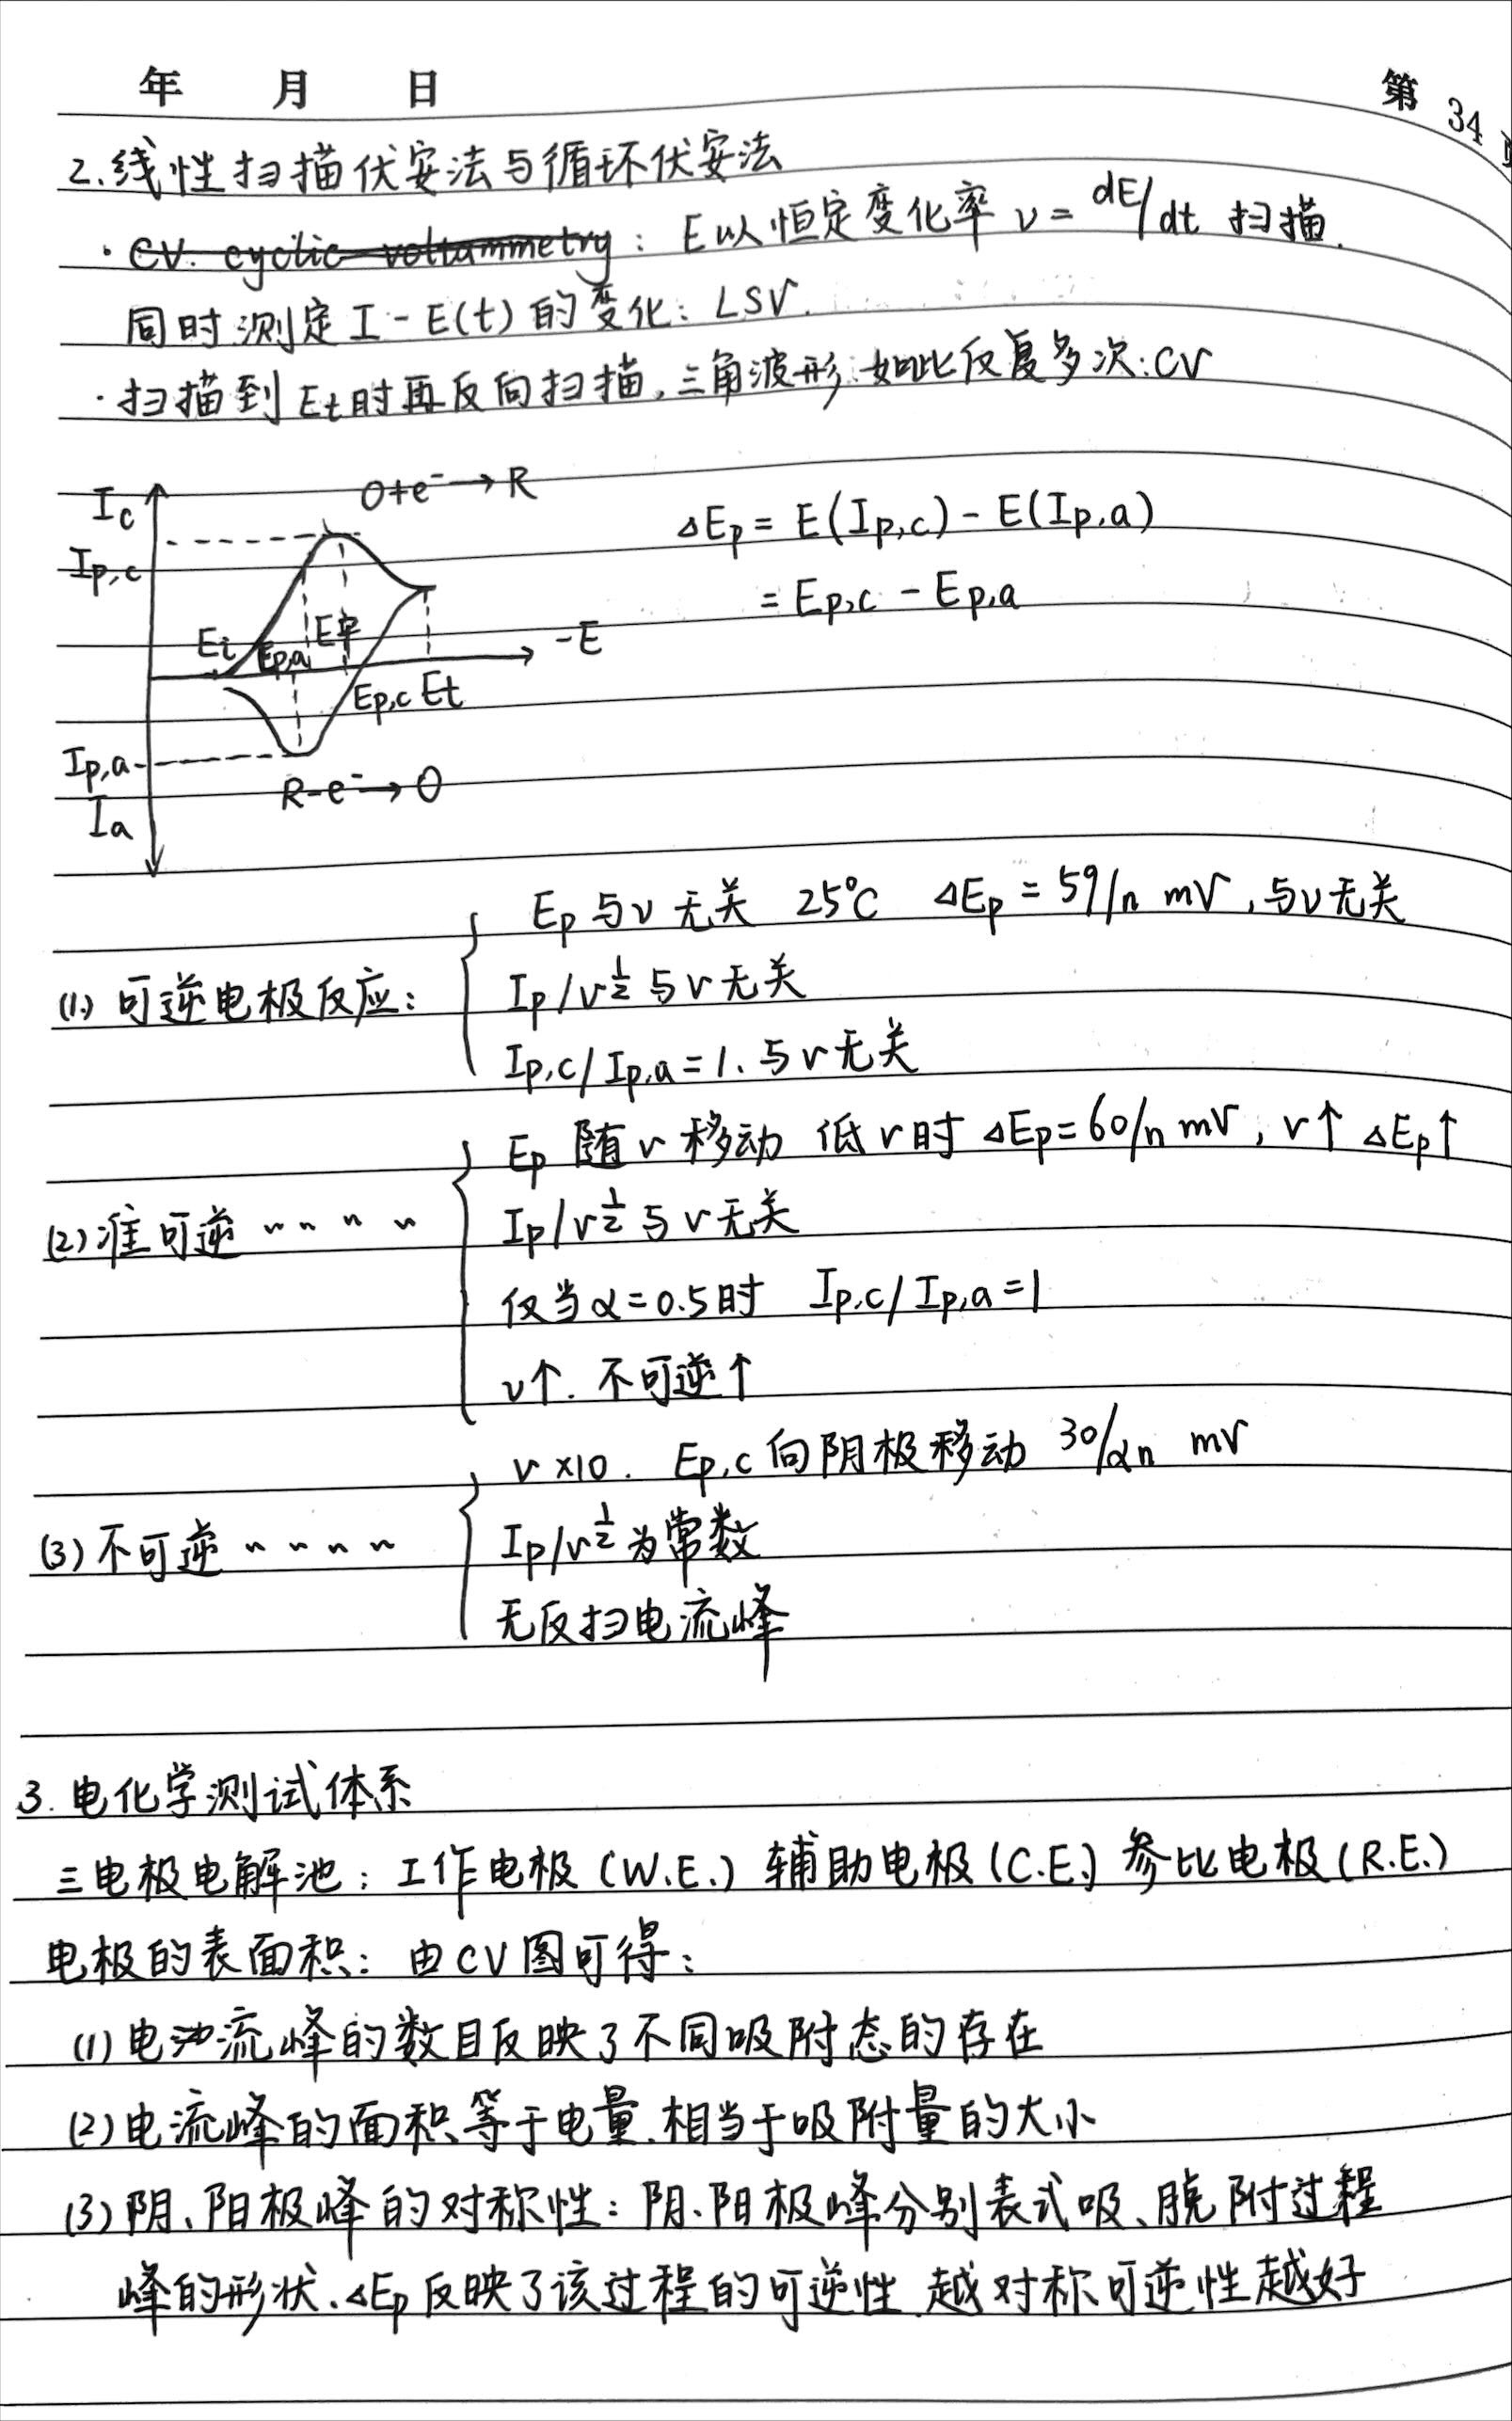 年 月 日
第 34
2.线性扫描伏安法与循环伏安法
· CV. cyclic voltammetry : E以恒定变化率 ν = dE/dt 扫描.
同时测定 I - E(t) 的变化: LSV.
· 扫描到 Et时再反向扫描,三角波形.如此反复多次:CV
Ic
O+e⁻→R
Ip,c
Ei
Ep,a
-E
Ep,c Et
Ip,a
Ia
R-e⁻→O
ΔEp = E(Ip,c) - E(Ip,a)
= Ep,c - Ep,a
(1) 可逆电极反应:
Ep 与ν 无关 25℃ ΔEp = 59/n mV ,与ν无关
Ip/ν½ 与ν无关
Ip,c/Ip,a=1. 与ν无关
(2)准可逆 〃〃〃〃
Ep 随ν移动 低ν时 ΔEp=60/n mV, ν↑ ΔEp↑
Ip/ν½ 与ν无关
仅当α=0.5时 Ip,c/Ip,a=1
ν↑. 不可逆↑
(3)不可逆 〃〃〃〃
ν×10. Ep,c 向阴极移动 30/αn mV
Ip/ν½ 为常数
无反扫电流峰
3.电化学测试体系
三电极电解池: 工作电极(W.E.) 辅助电极(C.E.) 参比电极(R.E.)
电极的表面积: 由CV图可得:
(1)电流峰的数目反映了不同吸附态的存在
(2)电流峰的面积等于电量.相当于吸附量的大小
(3)阴、阳极峰的对称性: 阴、阳极峰分别表式吸、脱附过程
峰的形状、ΔEp反映了该过程的可逆性.越对称可逆性越好